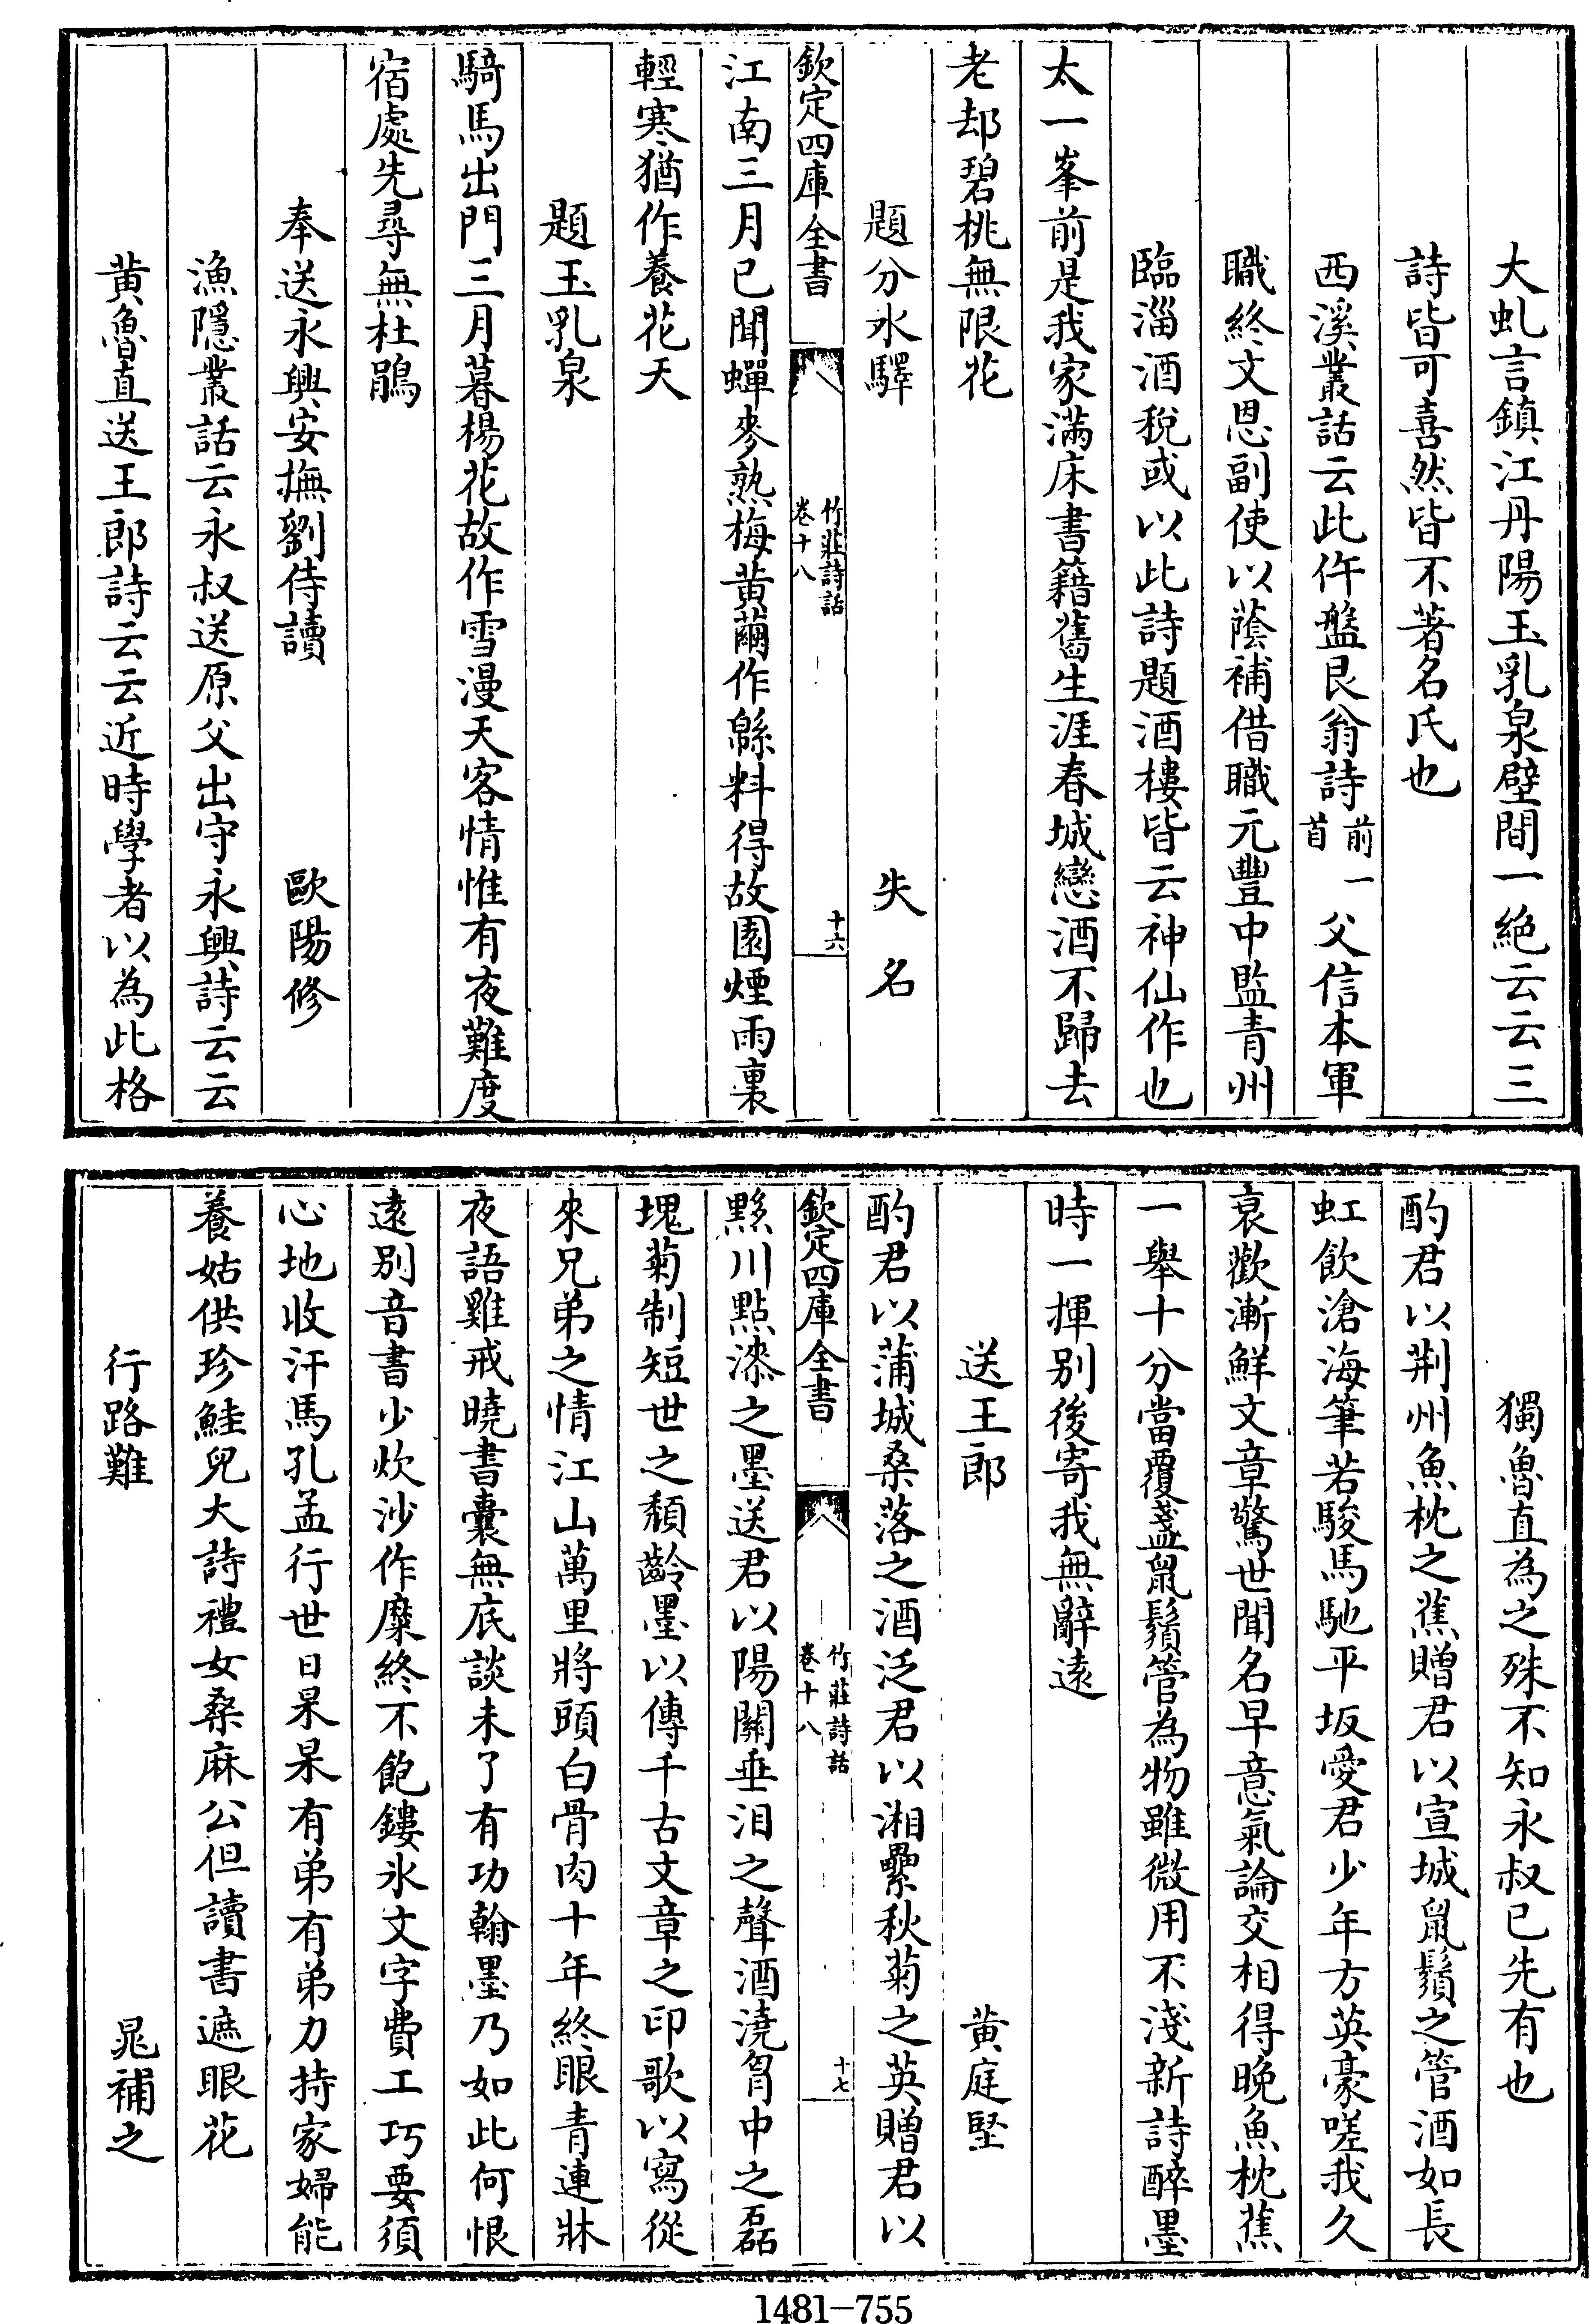 大虬言鎮江丹陽玉乳泉壁間一絶云云三
詩皆可喜然皆不著名氏也
西溪叢話云此仵盤艮翁詩前一首父信本軍
職終文思副使以蔭補借職元豐中監青州
臨淄酒稅或以此詩題酒樓皆云神仙作也
太一峯前是我家滿床書籍舊生涯春城戀酒不歸去
老却碧桃無限花
題分水驛 失名
欽定四庫全書 竹莊詩話 卷十八 十六
江南三月已聞蟬麥熟梅黃繭作緜料得故園煙雨裏
輕寒猶作養花天
題玉乳泉
騎馬出門三月暮楊花故作雪漫天客情惟有夜難度
宿處先尋無杜鵑
奉送永興安撫劉侍讀 歐陽修
漁隱叢話云永叔送原父出守永興詩云云
黃魯直送王郎詩云云近時學者以為此格
獨魯直為之殊不知永叔已先有也
酌君以荆州魚枕之蕉贈君以宣城鼠鬚之管酒如長
虹飲滄海筆若駿馬馳平坂愛君少年方英豪嗟我久
衰歡漸鮮文章驚世聞名早意氣論交相得晚魚枕蕉
一舉十分當覆盞鼠鬚管為物雖微用不淺新詩醉墨
時一揮别後寄我無辭遠
送王郎 黃庭堅
酌君以蒲城桑落之酒泛君以湘纍秋菊之英贈君以
欽定四庫全書 竹莊詩話 卷十八 十七
黟川點漆之墨送君以陽關垂泪之聲酒澆胷中之磊
塊菊制短世之頽齡墨以傳千古文章之印歌以寫從
來兄弟之情江山萬里將頭白骨肉十年終眼青連牀
夜語雞戒曉書囊無底談未了有功翰墨乃如此何恨
遠别音書少炊沙作糜終不飽鏤氷文字費工巧要須
心地收汗馬孔孟行世日杲杲有弟有弟力持家婦能
養姑供珍鮭兒大詩禮女桑麻公但讀書遮眼花
行路難 晁補之
1481-755